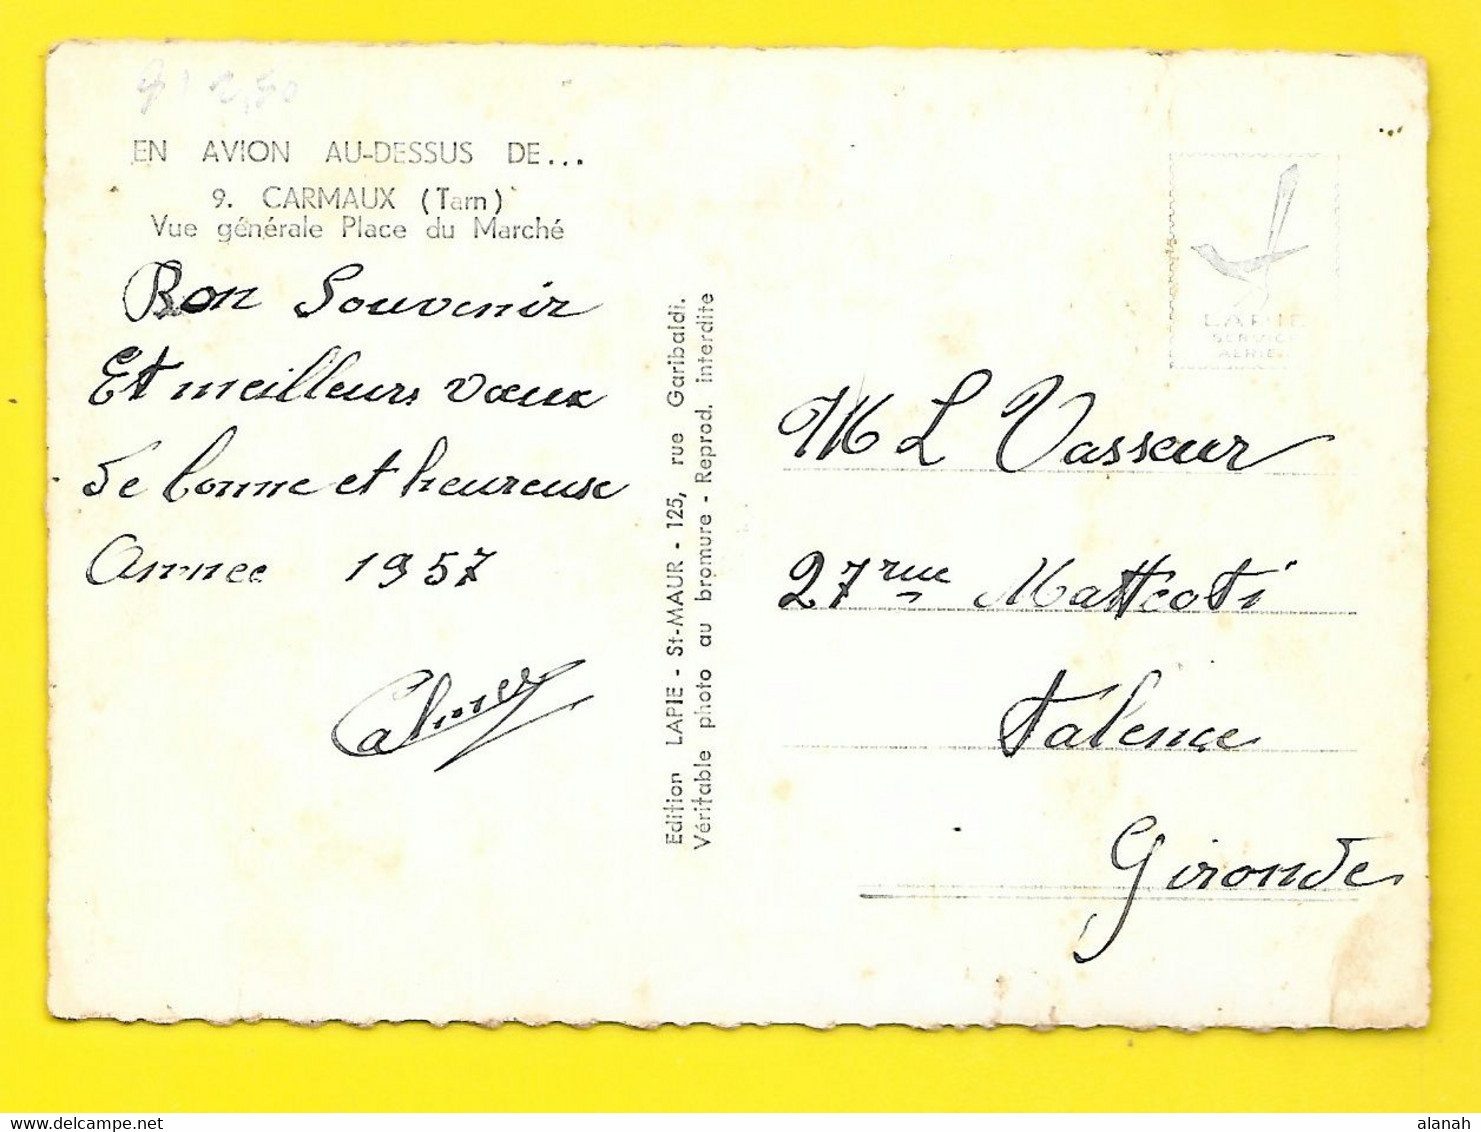 EN AVION AU-DESSUS DE...
9. CARMAUX (Tarn)
Vue générale Place du Marché
Bon Souvenir
Et meilleurs vœux
de bonne et heureuse
Année 1957
Edition LAPIE - St-MAUR - 125, rue Garibaldi.
Véritable photo au bromure - Reprod. interdite
LAPIE
SERVICE
AERIEN
M L Vasseur
27 rue Matteoti
Talence
Gironde
alanah